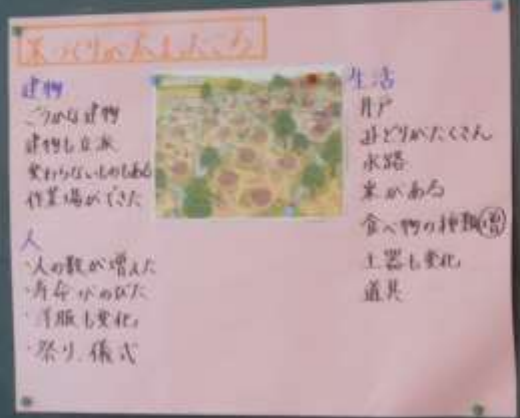 米づくりが広まったころ
建物
ごうかな建物
建物も立派
変わらないものもある
作業場ができた
人
・人の数が増えた
・寿命がのびた
・洋服も変化
・祭り、儀式
生活
井戸
緑がたくさん
水路
米がある
食べ物の種類増
土器も変化
道具